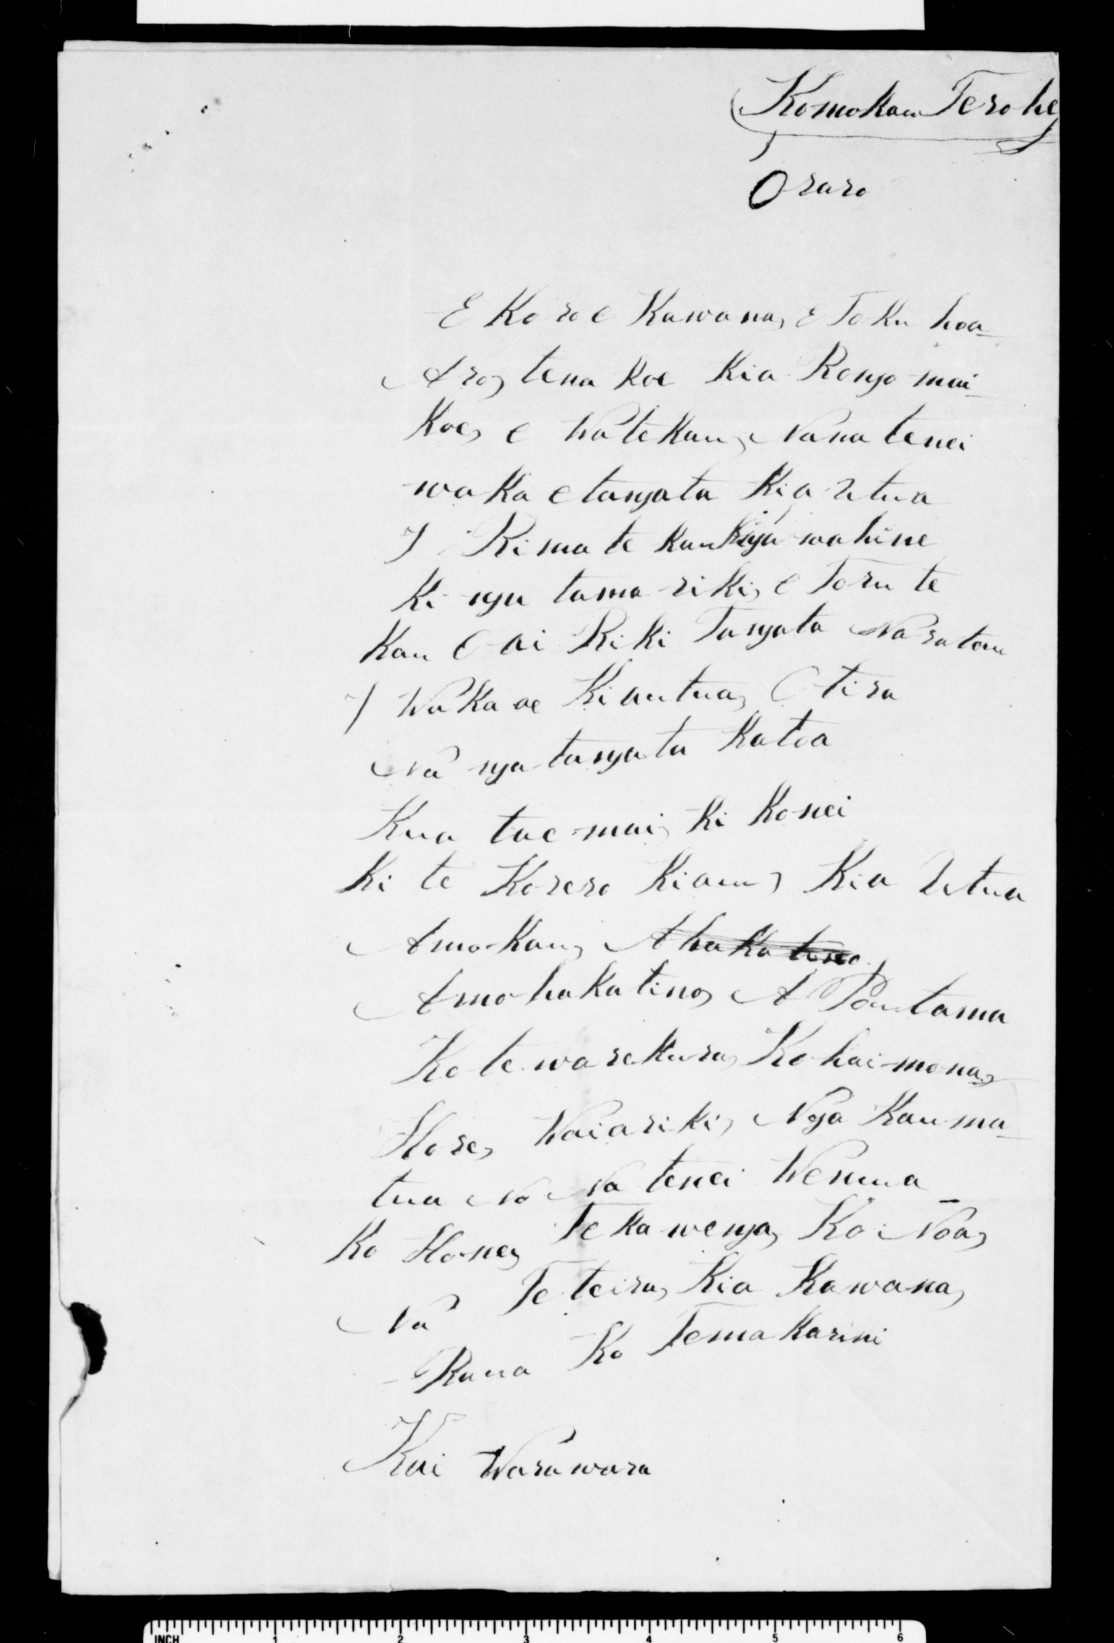 Komokau Terohe
Oraro
E Koro e Kawana, e Toku hoa
Aro, tena koe Kia Rongo mai
Koe, e Wa te Kau, Nana tenei
waka e tangata Kia Utua
I Rima te kau Kinga wahine
Ki nga tama riki, e Toru te
Kau e ai Riki Tangata Na ratou
I Waka ae Kia utua, Otira
Na nga tangata Katoa
Kua tae mai, ki Konei
Ki te Korero Kiau, Kia Utua
Amokau, Ahakatino
Amohakatino, A Poutama
Ko te warekura, Ko haimona,
Hore, Waiariki, Nga Kauma
tua No Na tenei Wenua
Ko Hone, Te Kawenga, Ko Noa,
Na Te teira, Kia Kawana,
Raua Ko Temakarini
Kai Warawara
INCH 1 2 3 4 5 6